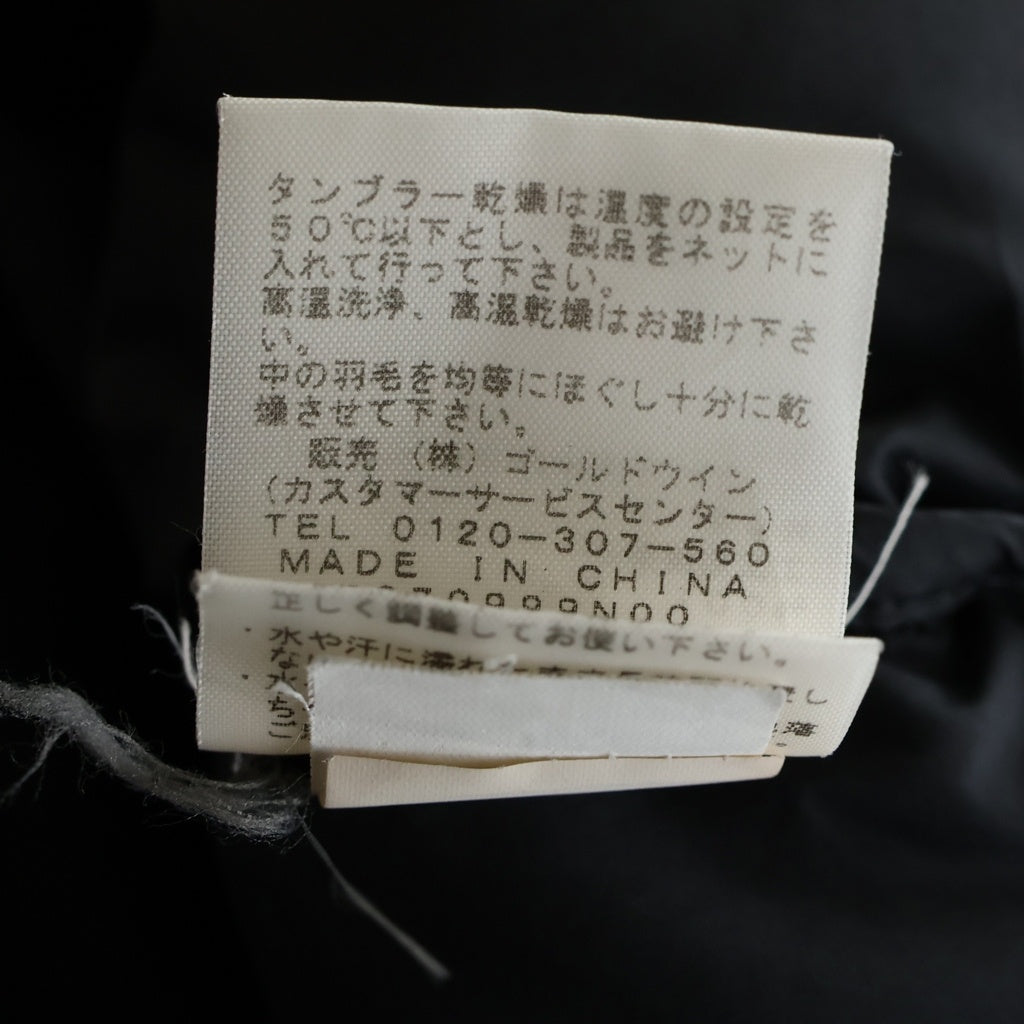 タンブラー乾燥は温度の設定を
50℃以下とし、製品をネットに
入れて行って下さい。
高温洗浄、高温乾燥はお避け下さ
い。
中の羽毛を均等にほぐし十分に乾
燥させて下さい。
販売 (株) ゴールドウイン
(カスタマーサービスセンター)
TEL 0120-307-560
MADE IN CHINA
0999N00
正しく調整してお使い下さい。
・水や汗に濡れ
な
・水
ち
ご